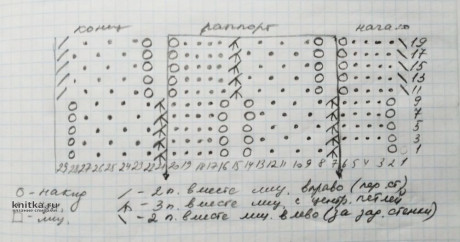 конец раппорт начало
19
17
15
13
11
9
7
5
3
1
29 28 27 26 25 24 23 22 21 20 19 18 17 16 15 14 13 12 11 10 9 8 7 6 5 4 3 2 1
О - накид
/ - 2п. вместе лиц. вправо (пер. ст)
- 3п. вместе лиц. с центр. петлей
\ - 2п. вместе лиц. влево (за зад. стенки)
- лиц.
knitka.ru